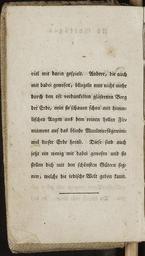 viel mit darin gespielt. Andere, die auch
mit dabei gewesen, blinzeln nun nicht mehr
durch den ist verdunkelten gläsernen Berg
der Erde, nein sie schauen schon mit himm-
lischen Augen aus dem reinen hellen Fir-
mament auf das blinde
dieser Erde herab. Diese sind auch
jetzt ein wenig mit dabei gewesen und sie
stellen dich mit den schönsten Gütern seg-
nen, welche die irdische Welt geben kann.